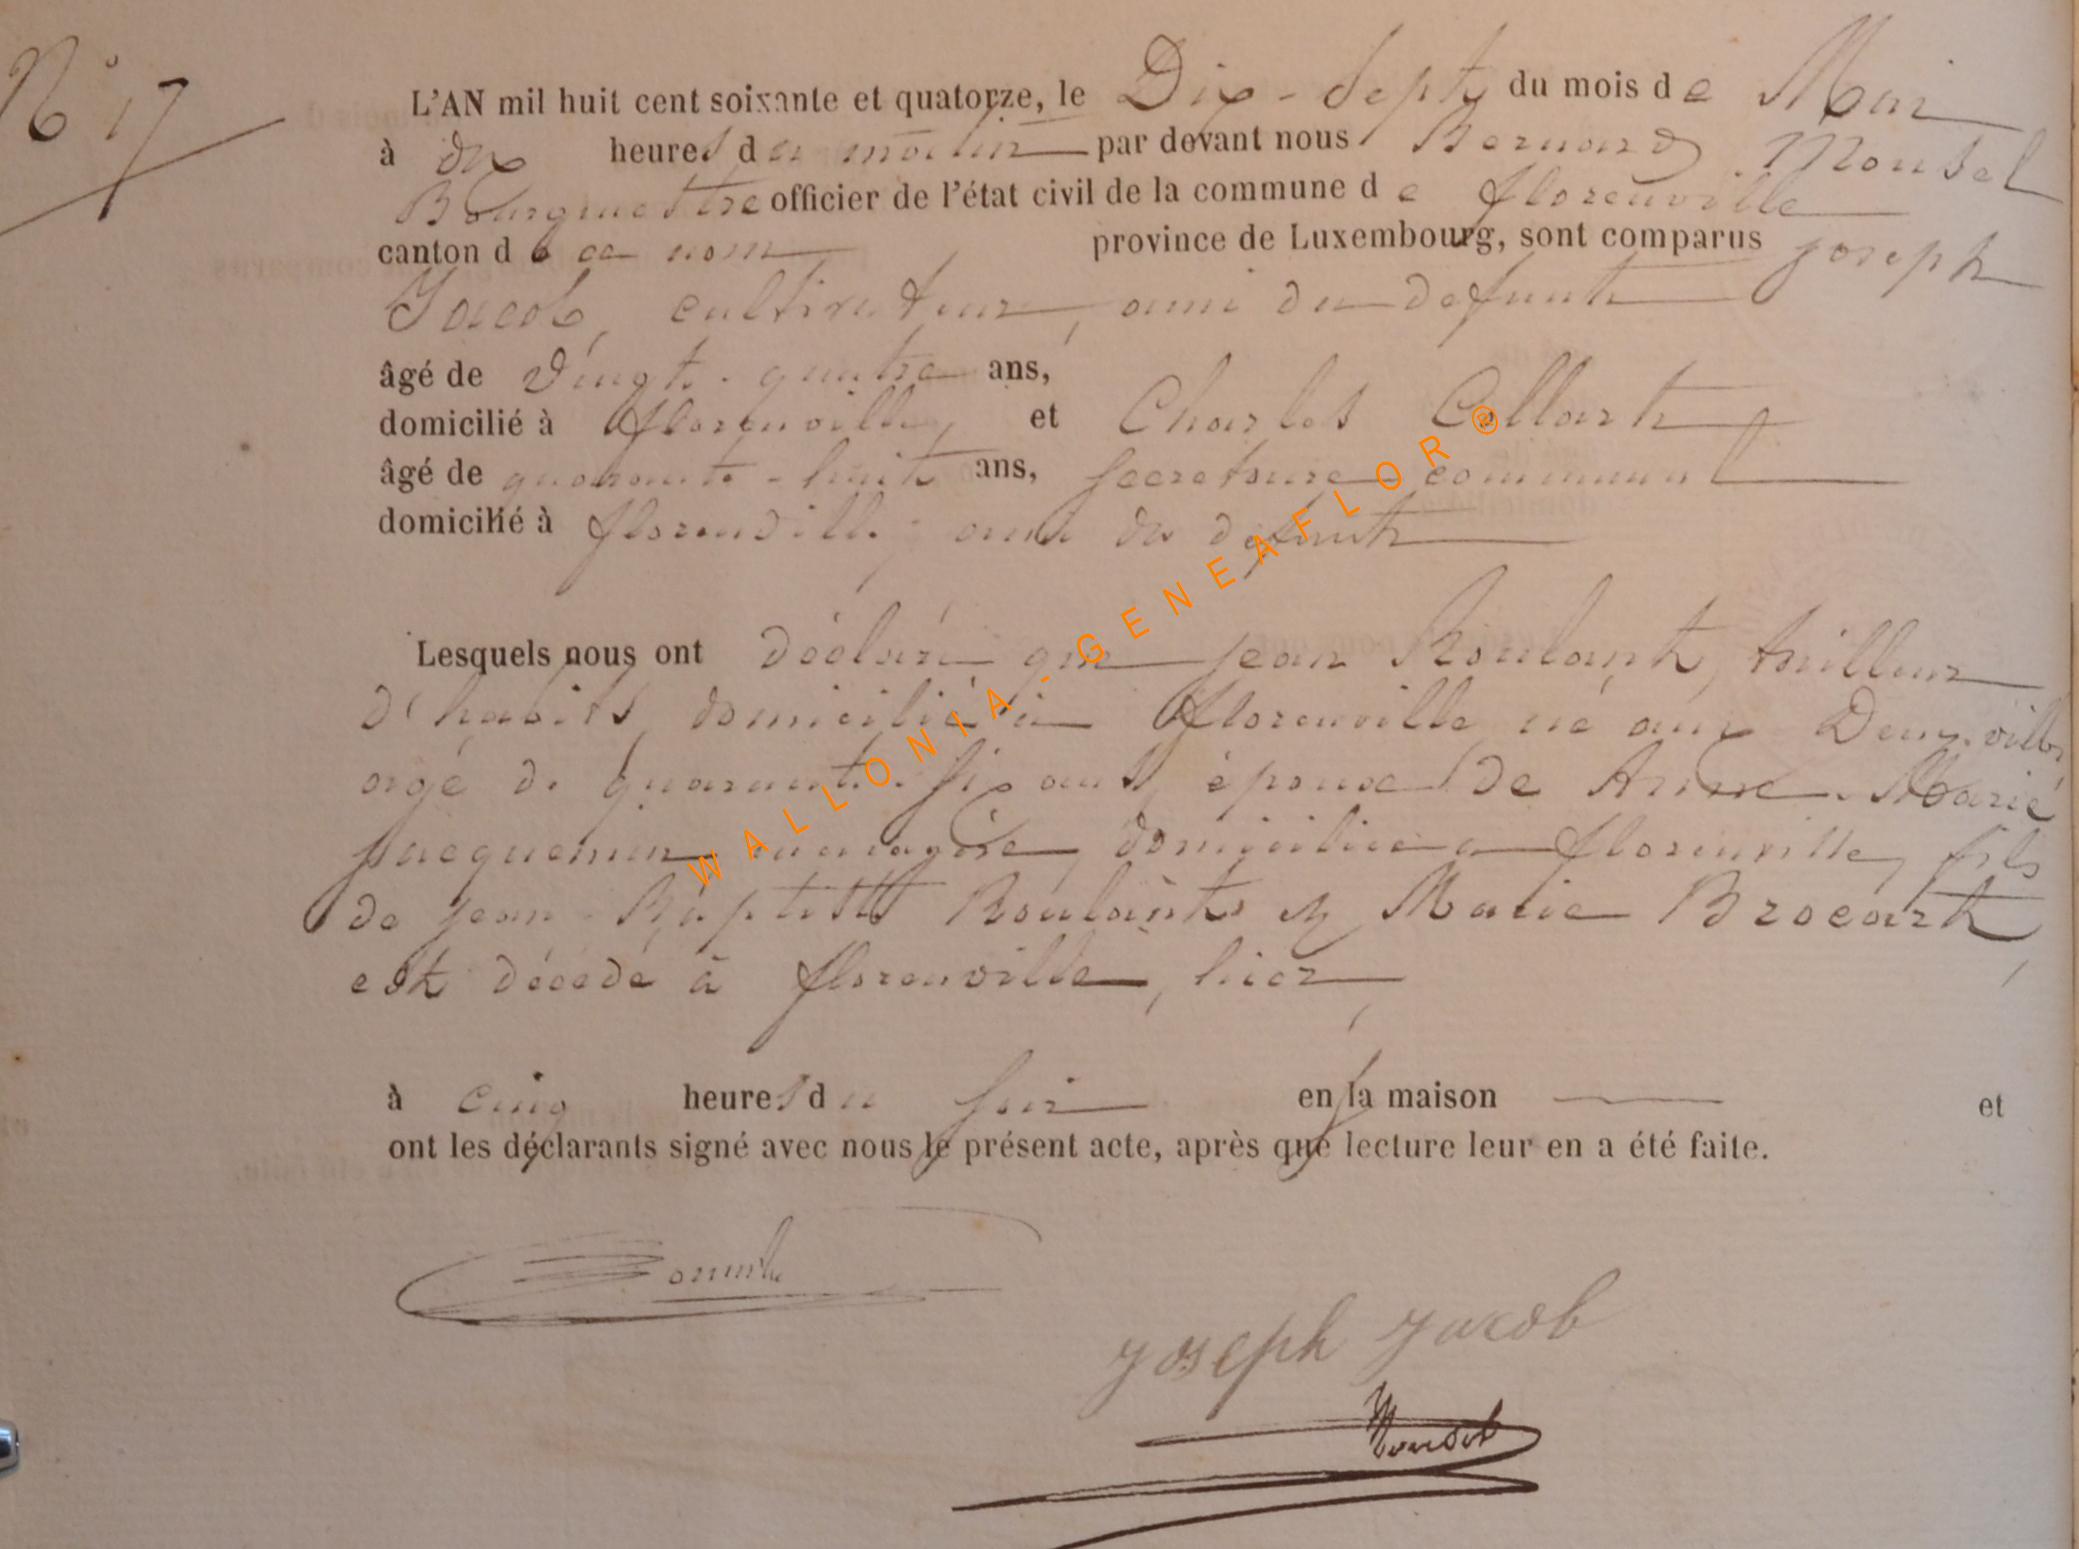 N° 17
L'AN mil huit cent soixante et quatorze, le Dix-sept du mois de Mai
à dix heures du matin par devant nous Bernard Monsel
Bourgmestre officier de l'état civil de la commune de florenville
canton de ce nom province de Luxembourg, sont comparus joseph
Jacob, cultivateur, ami du defunt
âgé de vingt-quatre ans,
domicilié à florenville, et Charles Collart
âgé de quarante-huit ans, secretaire communal
domicilié à florenville, ami du defunt
Lesquels nous ont déclaré que jean Roulant, tailleur
d'habits, domicilié à florenville né aux Deux-villes,
agé de quarante-six ans, époux de Anne-Marie
jacquemin ménagère, domiciliée a florenville, fils
de jean-Baptiste Roulant et Marie Brocart,
est décédé à florenville, hier,
à cinq heures du soir en sa maison et
ont les déclarants signé avec nous le présent acte, après que lecture leur en a été faite.
joseph jacob
Monsel
WALLONIA-GENEAFLOR®